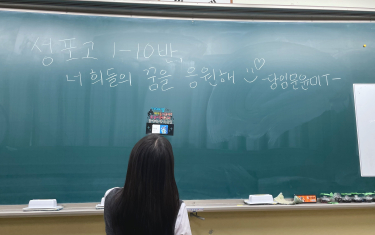 성포고 1-10반,
너희들의 꿈을 응원해 -담임문윤미T-